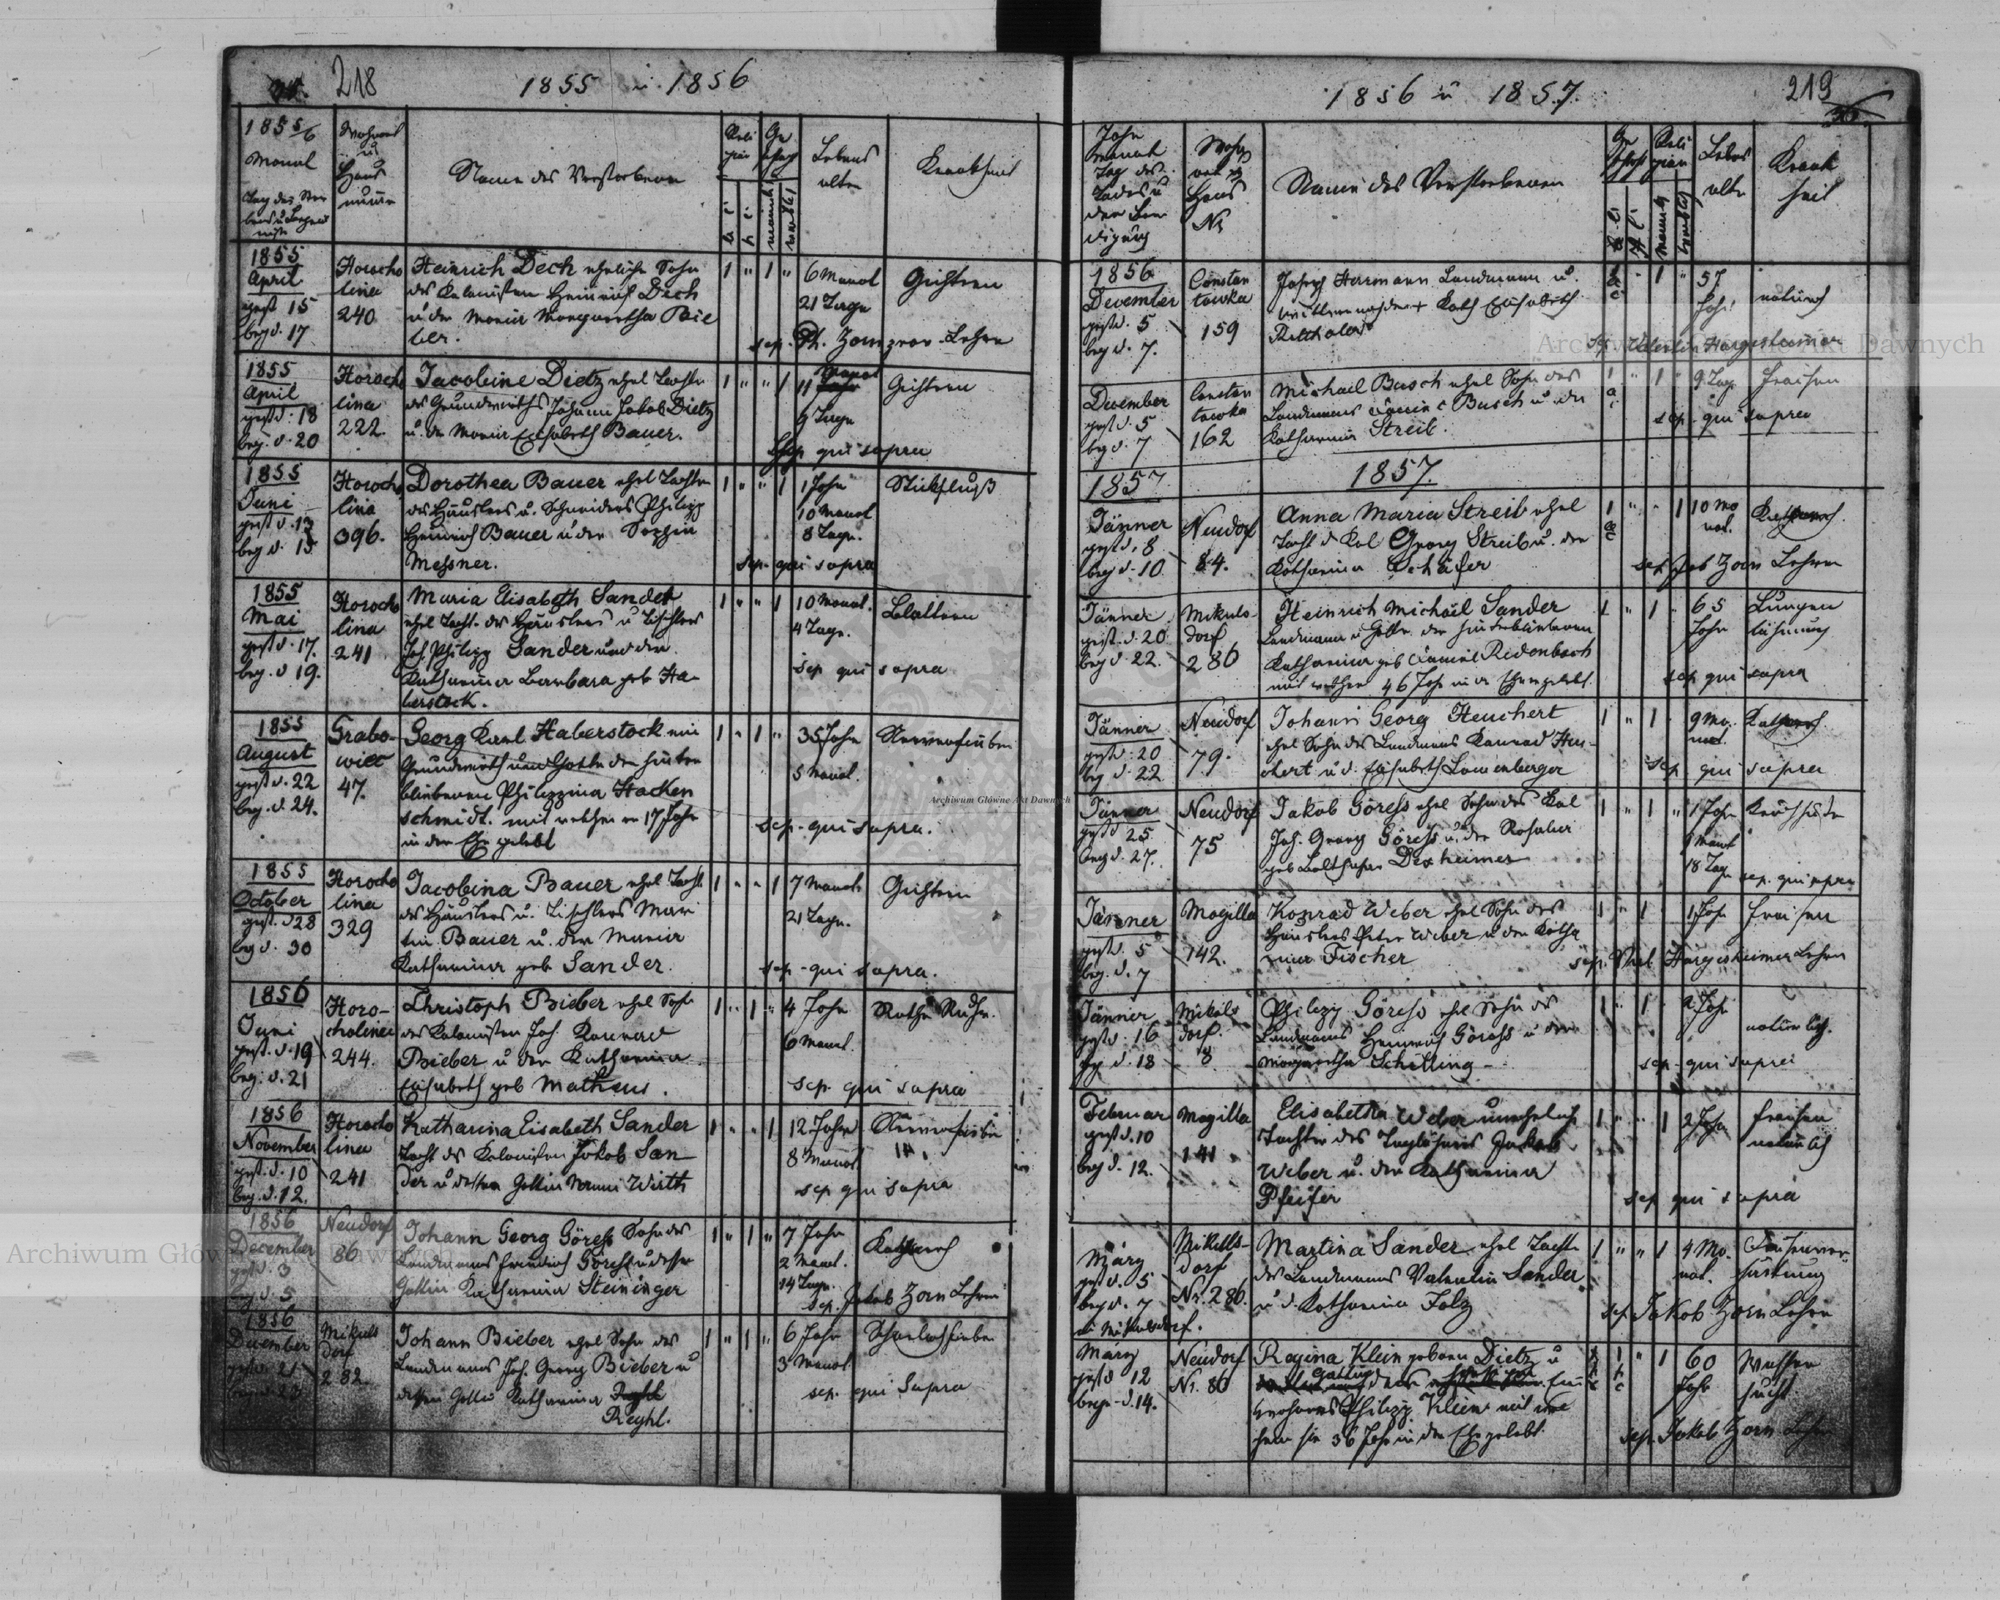 218
1855 u 1856
1855/6
Monat
Wohnort
u
Haus
Name des Verstorbenen
Lebens
alter
Krankheit
1855
April
gest 15
beg d. 17
Horocho
lina
240
Heinrich Deck ehelicher Sohn
des Kolonisten Heinrich Deck
u der Maria Margaretha Bie
ber.
1 " 1 "
6 Monat
21 Tage
Gichtern
sep. Ph. Zorn prov. Lehrer
1855
April
gest d. 18
beg. d. 20
Horocho
lina
222.
Jacobine Dietz ehel Tochter
des Grundwirths Johann Jakob Dietz
u. der Maria Elisabeth Bauer.
1 " " 1
11 Monat
9 Tage
Gichtern
sep qui supra
1855
Juni
gest d. 13
beg d. 15
Horocho
lina
396.
Dorothea Bauer ehel Tochter
des Häuslers u. Schneiders Philipp
Heinrich Bauer u der Sophia
Messner.
1 " " 1
1 Jahr
10 Monat
8 Tage.
Stickfluß
sep. qui supra
1855
Mai
gest d. 17.
beg. d 19.
Horocho
lina
241
Maria Elisabeth Sander
ehel Tocht. des Häuslers u Tischlers
Joh. Philipp Sander und der
Katharina Barbara geb Ha-
berstock.
1 " " 1
10 Monat.
4 Tage.
Blattern
sep qui supra
1855
August
gest d. 22
beg. d. 24.
Grabo-
wiec
47.
Georg Karl Haberstock ein
Grundwirth und Gatte der hinter
bliebenen Philippina Hacken
schmidt. mit welcher er 17 Jahr
in der Ehe gelebt
1 " 1 "
35 Jahr
5 Monat.
Nervenfieber
sep. qui supra.
1855
October
gest. d 28
beg d. 30
Horocho
lina
329
Jacobina Bauer ehel Tocht
des Häuslers u. Tischlers Mar
tin Bauer u. der Maria
Katharina geb Sander.
1 " " 1
7 Monat
21 Tage.
Gichtern
sep. qui supra.
1856
Juni
gest. d. 19
beg. d. 21
Horo-
cholina
244.
Christoph Bieber ehel Sohn
des Kolonisten Joh. Konrad
Bieber u der Katharina
Elisabeth geb Matheus.
1 " 1 "
4 Jahr
6 Monat.
Rothe Ruhr.
sep. qui supra
1856
November
gest. d. 10
beg. d. 12.
Horocho
lina
241
Katharina Elisabeth Sander
Tocht des Kolonisten Jakob San
der u dessen Gattin Wirth
1 " " 1
12 Jahr
8 Monat
Nervenfieber
sep qui supra
1856
December
gest d. 3
beg d. 5
Neudorf
86
Johann Georg Göress Sohn des
Landmanns Friedrich Göress u dessen
Gattin Katharina Steininger
1 " 1 "
7 Jahr
2 Monat.
14 Tage.
sep. Jakob Zorn Lehrer
1856
December
gest d. 21
Mikuls
dorf
282
Johann Bieber ehel Sohn des
Landmanns Joh. Georg Bieber u
dessen Gattin Katharina
Reyhl.
1 " 1 "
6 Jahr
3 Monat
Scharlachfieber
sep. qui supra
1856 u 1857.
219
Jahr
Monat
Tag des
Todes u
der Beer
digung
Wohn
ort u
Haus
Nr
Name des Verstorbenen
Lebens
alter
Krank
heit
1856
December
gest d. 5
beg d. 7.
Constan
towka
159
Joseph Herrmann Landmann u.
Kath Elisabeth
57
Jahr
natürlich
sep. Valentin Hargesheimer
December
gest d. 5
beg d. 7
Constan
towka
162
Michael Busch ehel Sohn des
Landmanns Daniel Busch u. der
Katharina Streib.
9 Tage
Fraisen
sep. qui supra
1857
1857.
Jänner
gest d. 8
beg d. 10
Neudorf
84.
Anna Maria Streib ehel
Tocht d Kol Georg Streib u. der
Katharina Schäfer
10 Mo
nat.
sep Jak Zorn Lehrer
Jänner
gest. d. 20
beg d. 22.
Mikuls-
dorf
286
Heinrich Michael Sander
Landmann u Gatte der hinterbliebenen
Katharina geb Daniel Redenbach
mit welcher 46 Jahr in der Ehe gelebt
1 " 1
65
Jahr
Lungen
lähmung
sep qui supra
Jänner
gest d. 20
beg d. 22
Neudorf
79.
Johann Georg Heuchert
ehel Sohn des Landmanns Konrad Heu-
chert u d. Elisabeth Lauenberger
1 " 1
9 Mo.
nat.
sep qui supra
Jänner
gest d 25
beg d. 27.
Neudorf
75
Jakob Göress ehel Sohn des Kol
Joh. Georg Göress u. der Rosalia
geb Dexheimer
1 " 1 "
1 Jahr
1 Monat
18 Tage
Keuchhusten
sep. qui supra
Jänner
gest d. 5
beg. d. 7
Mogilla
142.
Konrad Weber ehel Sohn des
Häuslers Peter Weber u der Katha
rina Fischer
1 " 1
1 Jahr
Fraisen
sep. Val. Hargesheimer Lehrer
Jänner
gest d. 16
beg. d. 18
Mikuls
dorf.
8
Philipp Göress ehel Sohn des
Landmanns Heinrich Göress u der
Margaretha Schilling
1 " 1
Jahr
natürlich.
sep. qui supra
Februar
gest d. 10
beg d. 12.
Mogilla
141
Elisabetha Weber uneheliche
Tochter des Taglöhners Jakob
Weber u. der Katharina
Pfeifer
1 " " 1
2 Jahr
Fraisen
natürlich
sep qui supra
März
gest d. 5
beg d. 7
in Mikulsdorf.
Mikuls-
dorf
Nr. 286.
Martina Sander ehel Tochter
des Landmanns Valentin Sander
u d. Katharina Folz
1 " " 1
4 Mo.
nat.
sep. Jakob Zorn Lehrer
März
gest d 12
beg. d. 14.
Neudorf
Nr. 86
Regina Klein geboren Dietz u
Gattin des
Philipp Klein mit wel
chem sie 36 Jahr in der Ehe gelebt.
" 1
60
Jahr
Wasser
sucht.
sep. Jakob Zorn Lehrer
Archiwum Główne Akt Dawnych
Archiwum Główne Akt Dawnych
Archiwum Główne Akt Dawnych